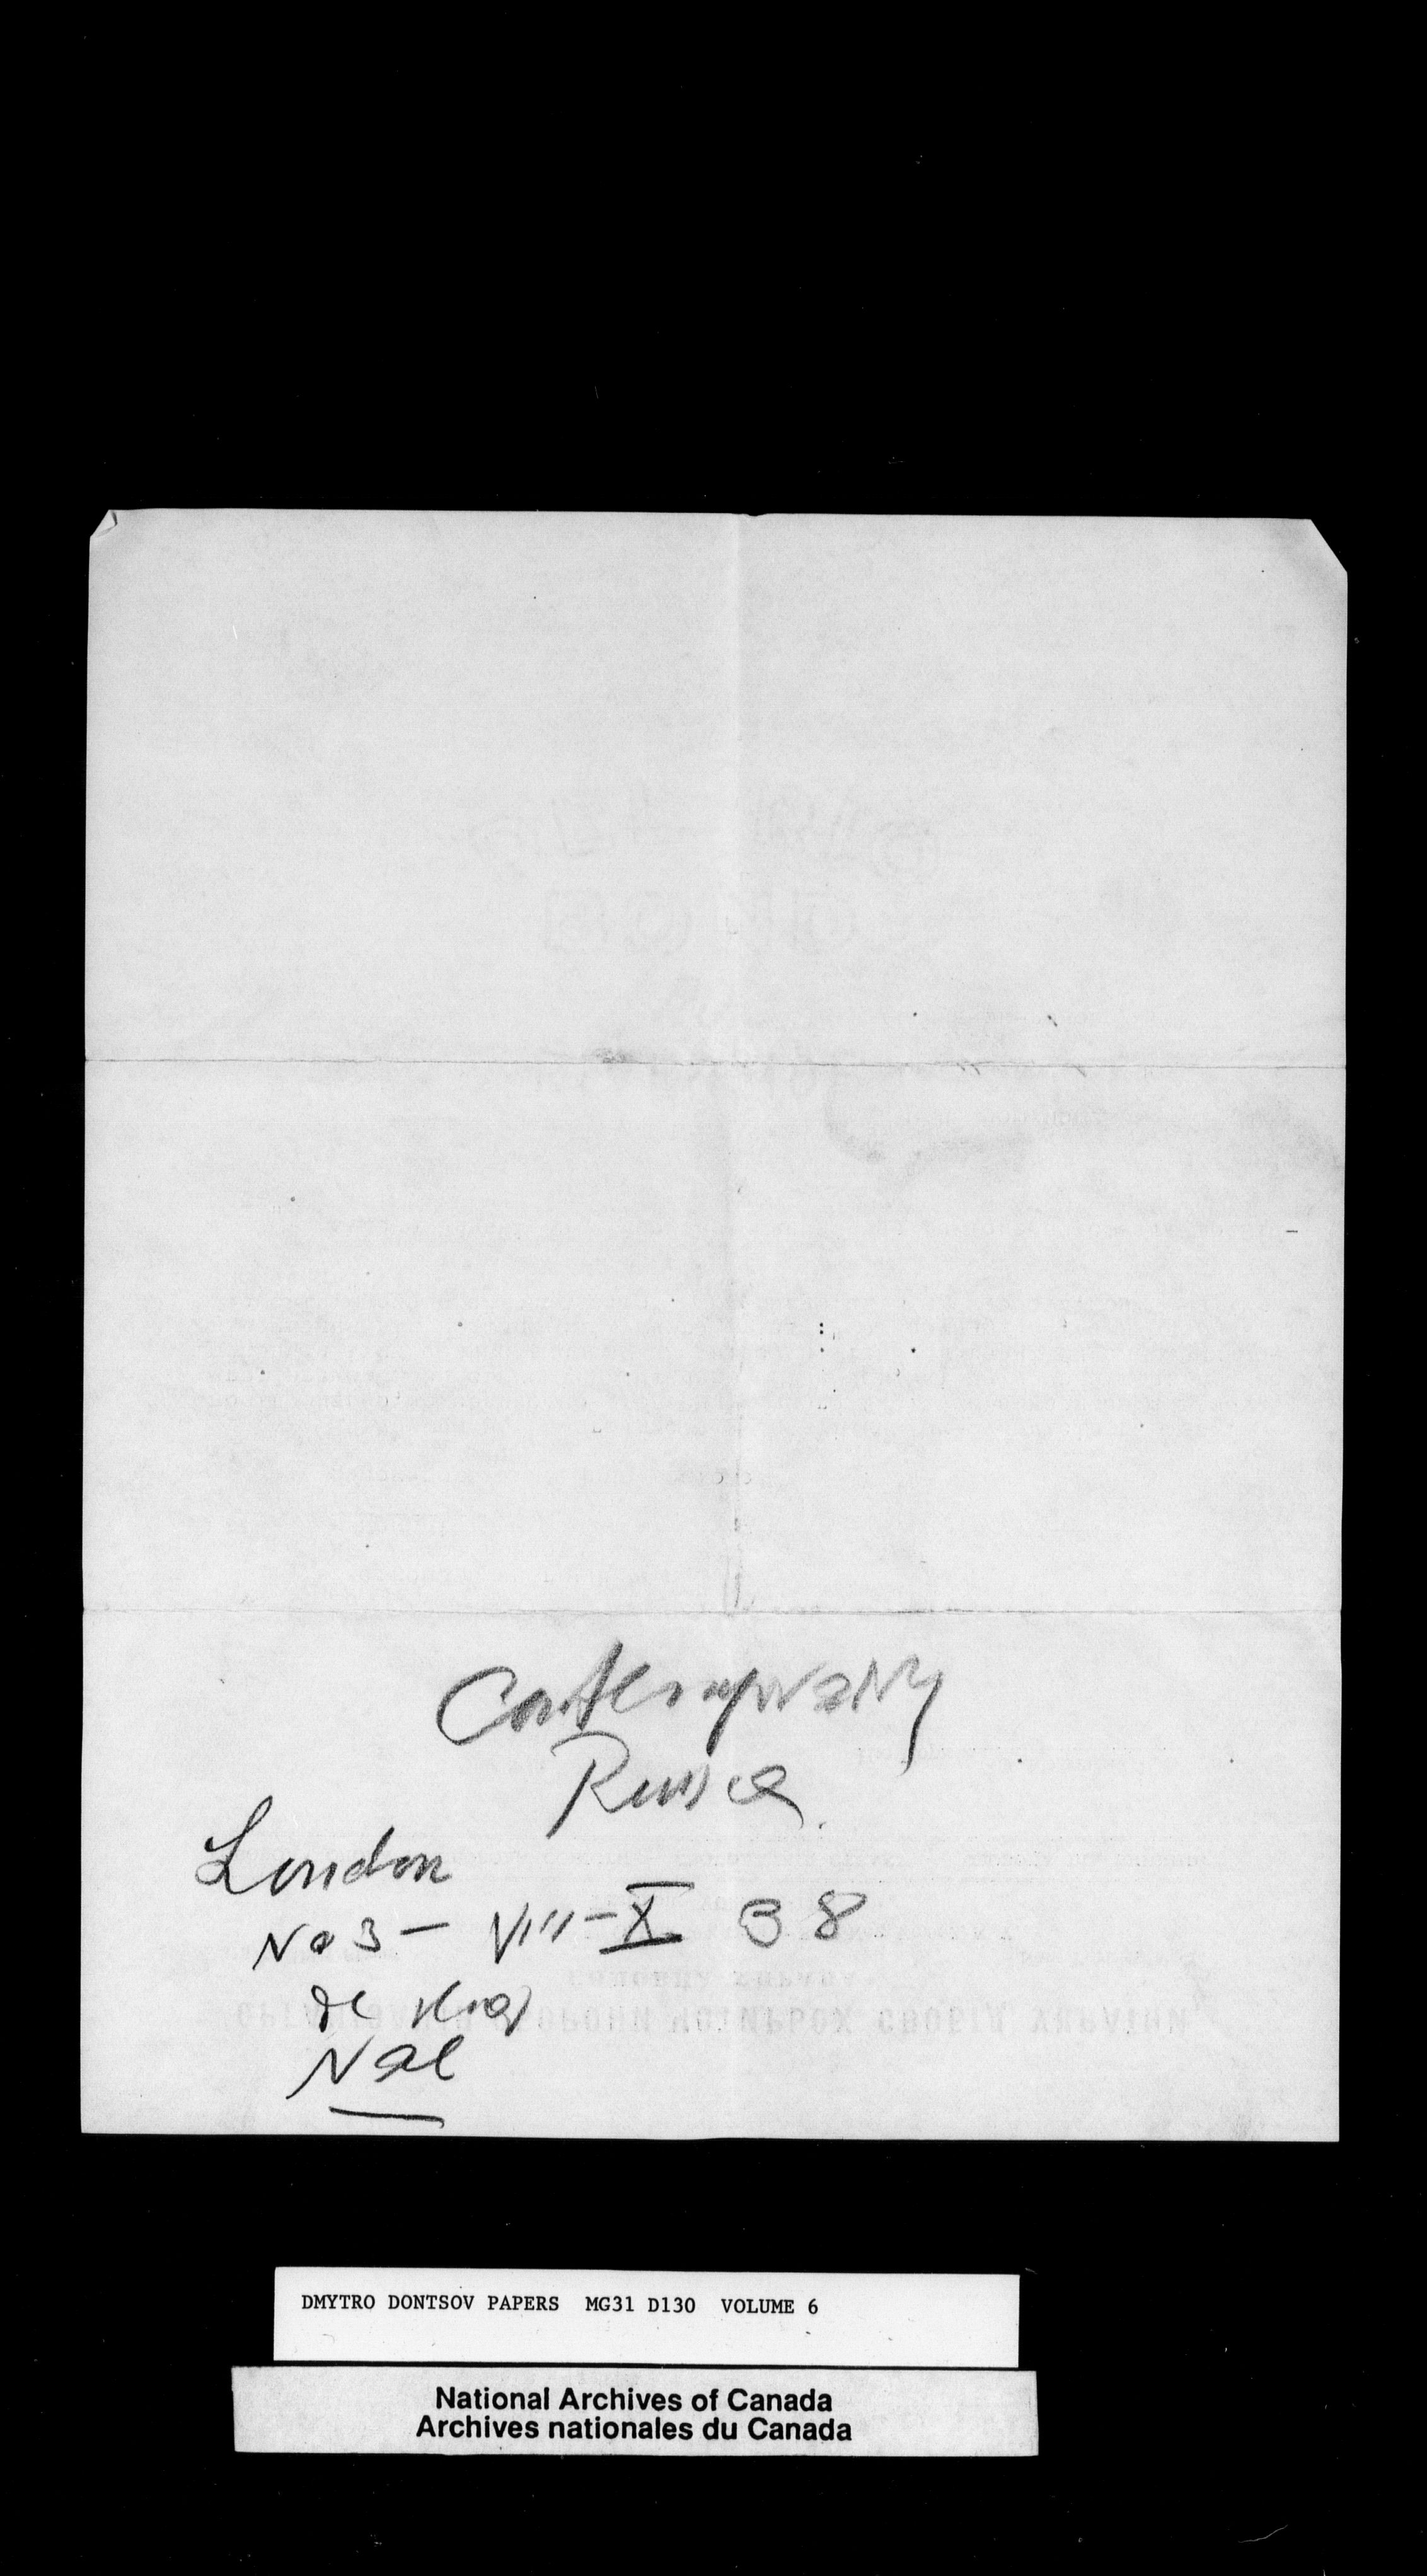 Contemporary
Russia
London
No 3 – VIII–X 38
de
DMYTRO DONTSOV PAPERS MG31 D130 VOLUME 6
National Archives of Canada
Archives nationales du Canada